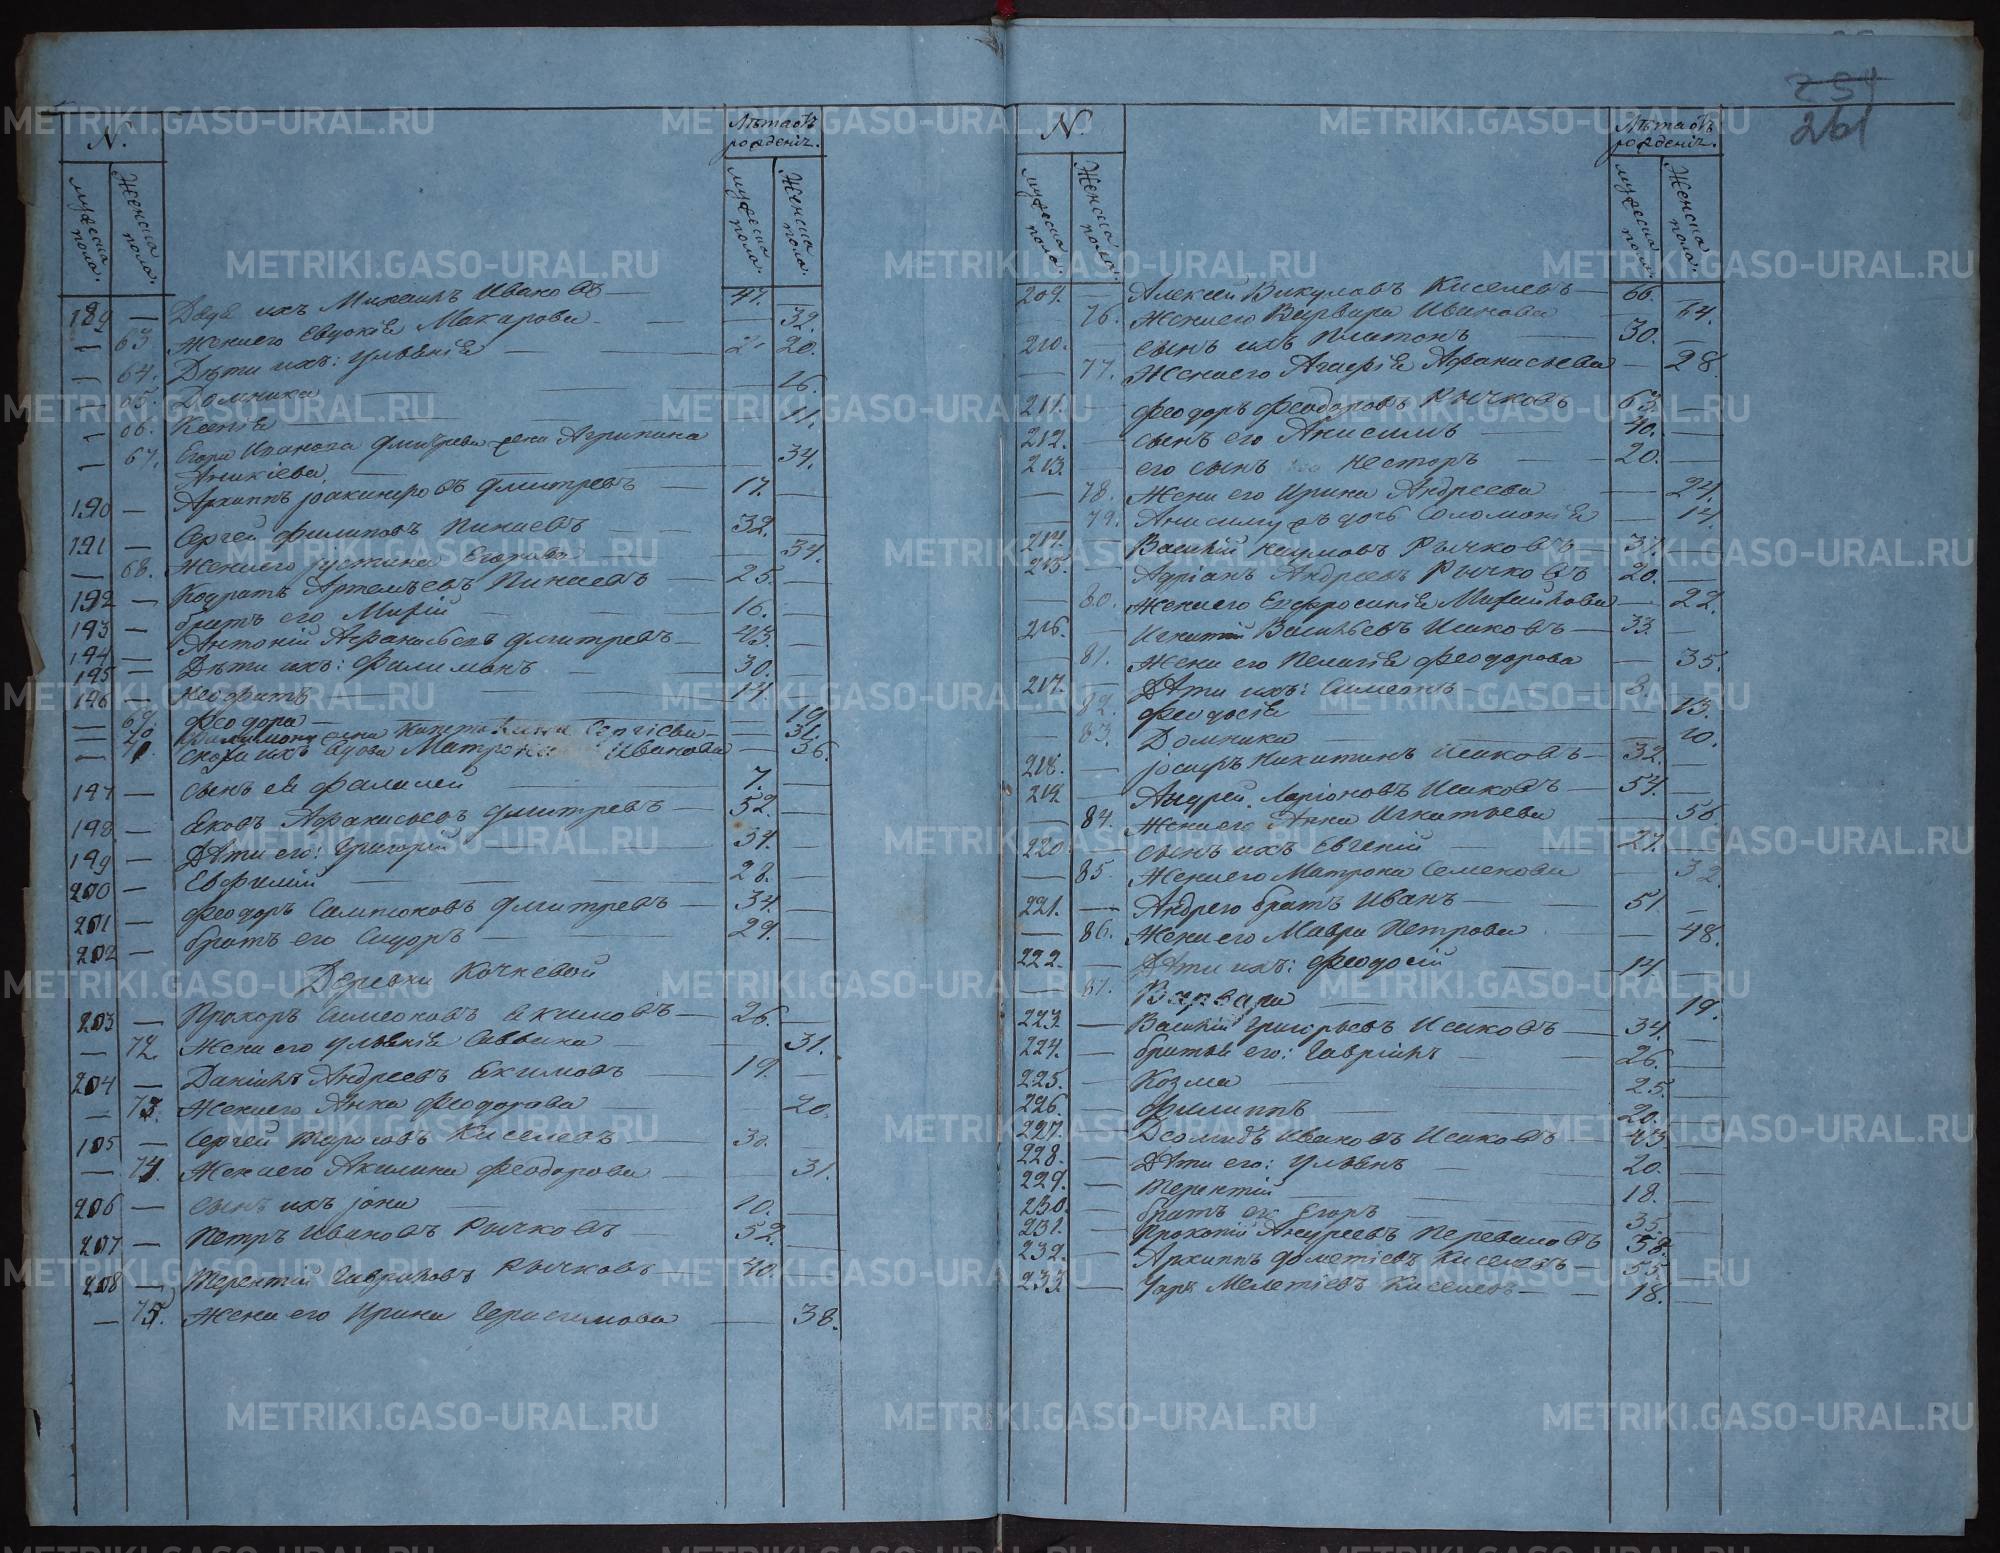 254
261
N.
Лѣта отъ рожденія.
мужеска пола.
Женска пола.
мужеска пола.
Женска пола.
189 — Дядя ихъ Михаилъ Ивановъ — 47.
— 63. Жена его Евдокія Макарова — 32.
— 64. Дѣти ихъ: Ульянія — 20.
— 65. Домника — 16.
— 66. Ксенія — 11.
— 67. Егора Иванова Дмитрева жена Агрипина
Аникіева, — 34.
190 — Архиппъ Іоакинфовъ Дмитревъ — 17.
191 — Сергей Филиповъ Пинаевъ — 32.
— 68. Жена его Іустина Егорова — 34.
192 — Кодратъ Артемьевъ Пинаевъ — 25.
193 — братъ его — 16.
194 — Антоній Афанасьевъ Дмитревъ — 43.
195 — Дѣти ихъ: Филимонъ — 30.
196 — Неофитъ — 14.
— 69. Феодора — 19
— 70. Филимону жена Сергіева — 31.
— 71. вдова Матрона Иванова — 36.
197 — сынъ ея — 7.
198 — Яковъ Афанасьевъ Дмитревъ — 52.
199 — Дѣти его: Григорій — 34.
200 — Евфимій — 28.
201 — Феодоръ Сампсоновъ Дмитревъ — 34.
202 — братъ его Сидоръ — 29.
Деревни Кочневой
203 — Прохоръ Симеоновъ Екимовъ — 26.
— 72. Жена его Ульянія Саввина — 31.
204 — Даніилъ Андреевъ Екимовъ — 19.
— 73. Жена его Анна Феодорова — 20.
205 — Сергей Тарасовъ Киселевъ — 30.
— 74. Жена его Акилина Феодорова — 31.
206 — сынъ ихъ Іона — 10.
207 — Петръ Ивановъ Рычковъ — 52.
208 — Терентій Гавриловъ Рычковъ — 40.
— 75. Жена его Ирина Герасимова — 38.
N
Лѣта отъ рожденія.
мужеска пола.
Женска пола.
мужеска пола.
Женска пола.
209. — Алексей Викуловъ Киселевъ — 66.
— 76. Жена его Варвара Иванова — 64.
210. — сынъ ихъ Платонъ — 30.
— 77. Жена его Агафія Афанасьева — 28.
211. — Феодоръ Феодоровъ Рычковъ — 63.
212. — сынъ его Анисимъ — 40.
213. — его сынъ Несторъ — 20.
— 78. Жена его Ирина Андреева — 24.
— 79. Анисиму дочь Соломонія — 14.
214. — Василій Наумовъ Рычковъ — 37.
215. — Адріанъ Андреевъ Рычковъ — 20.
— 80. Жена его Евфросинія Михайлова — 22.
216. — Игнатій Васильевъ Исаковъ — 33.
— 81. Жена его Пелагія Феодорова — 35.
217. — Дѣти ихъ: Симеонъ — 8.
— 82. Феодосія — 13.
— 83. Домника — 10.
218. — Іосифъ Никитинъ Исаковъ — 32.
219 — Андрей Ларіоновъ Исаковъ — 54.
— 84. Жена его Анна Игнатьева — 56.
220 — сынъ ихъ Евгеній — 27.
— 85. Жена его Матрона Семенова — 32.
221. — Андрею братъ Иванъ — 51.
— 86. Жена его Мавра Петрова — 48.
222. — Дѣти ихъ: Феодосій — 14.
— 87. Варвара — 19.
223 — Василій Григорьевъ Исаковъ — 34.
224. — братья его: Гавріилъ — 26.
225. — Козма — 25.
226. — Филиппъ — 20.
227. — Деомидъ Ивановъ Исаковъ — 43.
228. — Дѣти его: Ульянъ — 20.
229. — Терентій — 18.
230. — братъ ихъ Егоръ — 35.
231. — Прокопій Андреевъ Переваловъ — 58.
232. — Архиппъ Дометіевъ Киселевъ — 55.
233. — Уаръ Мелетіевъ Киселевъ — 18.
METRIKI.GASO-URAL.RU